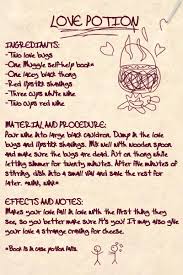 LOVE POTION
INGREDIANTS:
-Two love bugs
-One Muggle self-help book*
-One lacey black thong
-Red lipstick shavings
-Three cups white wine
-Two cups red wine
MATERIAL AND PROCEDURE:
Pour wine into large black cauldron. Dump in the love
bugs and lipstick shavings. Mix well with wooden spoon
and make sure the bugs are dead. Put on thong while
letting simmer for twenty minutes. After five minutes of
stirring, dish into a small vial and save the rest for
later. *wink, wink*
EFFECTS AND NOTES:
Makes your love fall in love with the first thing they
see, so you better make sure it's you! It may also give
your love a strange craving for cheese.
*Book is in case potion fails.